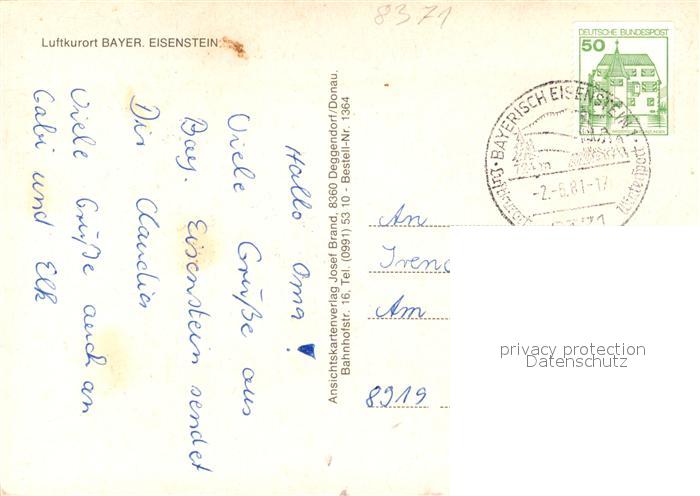 8371
Luftkurort BAYER. EISENSTEIN.
Hallo Oma!
Viele Grüße aus
Bay. Eisenstein sendet
Dir Claudia
Viele Grüße auch an
Gabi und Elk
Ansichtskartenverlag Josef Brand, 8360 Deggendorf/Donau.
Bahnhofstr. 16, Tel. (0991) 53 10 - Bestell-Nr. 1364
DEUTSCHE BUNDESPOST
50
BAYERISCH EISENSTEIN 1
-2.-6.81-17
Luftkurort
Wintersport
An
Iren
Am
8919
privacy protection
Datenschutz